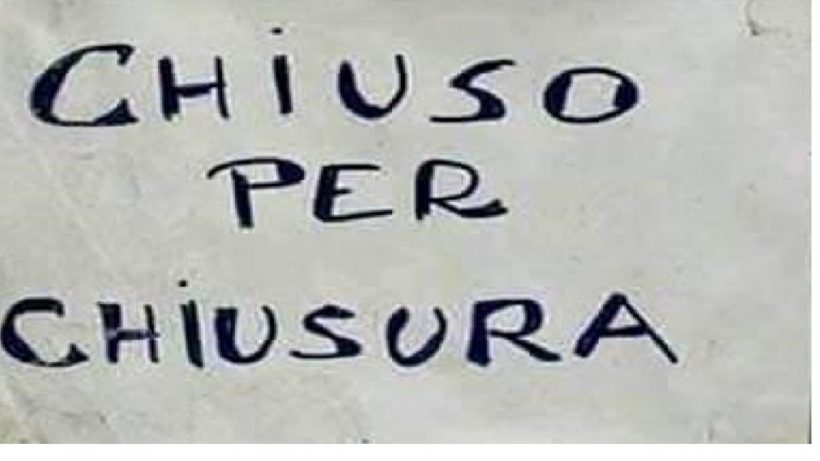 CHiUSO
PER
CHiUSURA